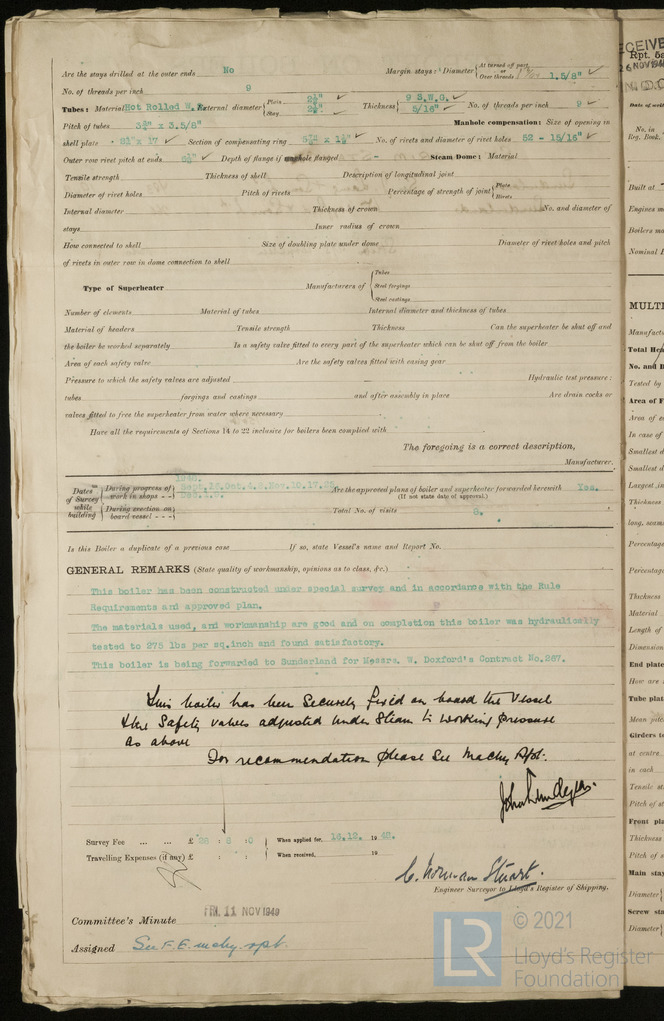 Are the stays drilled at the outer ends No Margin stays: Diameter { At turned off part, or Over threads 1.5/8"
No. of threads per inch 9
Tubes: Material Hot Rolled W.I. External diameter { Plain Stay Thickness { 9 S.W.G. 5/16" No. of threads per inch 9
Pitch of tubes x 3.5/8" Manhole compensation: Size of opening in
shell plate x 17 Section of compensating ring No. of rivets and diameter of rivet holes 52 - 15/16"
Outer row rivet pitch at ends Depth of flange if manhole flanged Steam Dome: Material
Tensile strength Thickness of shell Description of longitudinal joint
Diameter of rivet holes Pitch of rivets Percentage of strength of joint { Plate Rivets
Internal diameter Thickness of crown No. and diameter of
stays Inner radius of crown
How connected to shell Size of doubling plate under dome Diameter of rivet holes and pitch
of rivets in outer row in dome connection to shell
Type of Superheater Manufacturers of { Tubes Steel forgings Steel castings
Number of elements Material of tubes Internal diameter and thickness of tubes
Material of headers Tensile strength Thickness Can the superheater be shut off and
the boiler be worked separately Is a safety valve fitted to every part of the superheater which can be shut off from the boiler
Area of each safety valve Are the safety valves fitted with easing gear
Pressure to which the safety valves are adjusted Hydraulic test pressure:
tubes forgings and castings and after assembly in place Are drain cocks or
valves fitted to free the superheater from water where necessary
Have all the requirements of Sections 14 to 22 inclusive for boilers been complied with
The foregoing is a correct description,
Manufacturer.
Dates of Survey while building { During progress of work in shops - - During erection on board vessel - - -
1948.
Are the approved plans of boiler and superheater forwarded herewith Yes.
(If not state date of approval.)
Total No. of visits 8.
Is this Boiler a duplicate of a previous case If so, state Vessel's name and Report No.
GENERAL REMARKS (State quality of workmanship, opinions as to class, &c.)
This boiler has been constructed under special survey and in accordance with the Rule
Requirements and approved plan.
The materials used, and workmanship are good and on completion this boiler was hydraulically
tested to 275 lbs per sq.inch and found satisfactory.
This boiler is being forwarded to Sunderland for Messrs. W. Doxford's Contract No.267.
This boiler has been securely fixed on board the Vessel
the Safety valves adjusted under Steam to working pressure
as above
For recommendation please see Machy Rpt.
Survey Fee ... ... £ 28 : 8 : 0 When applied for, 16.12. 19 48.
Travelling Expenses (if any) £ : : When received, 19
C. Norman Stuart.
Engineer Surveyor to Lloyd's Register of Shipping.
Committee's Minute FRI. 11 NOV 1949
Assigned See F.E. machy rpt.
LR © 2021
Lloyd's Register
Foundation
Rpt. 5a
No. in
Reg. Book.
Built at
Engines m
Boilers ma
Nominal
MULTI
Total Hea
No. and
Tested by
Area of F
In case of
Smallest d
Smallest d
Thickness
Percentage
Percentage
Thickness
Material
Length of
Dimension
End plate
How are
Tube plat
Mean pitc
Girders to
at centre
in each
Tensile st
Pitch of st
Front pla
Thickness
Pitch of s
Main stay
Diameter
Screw sta
Diameter